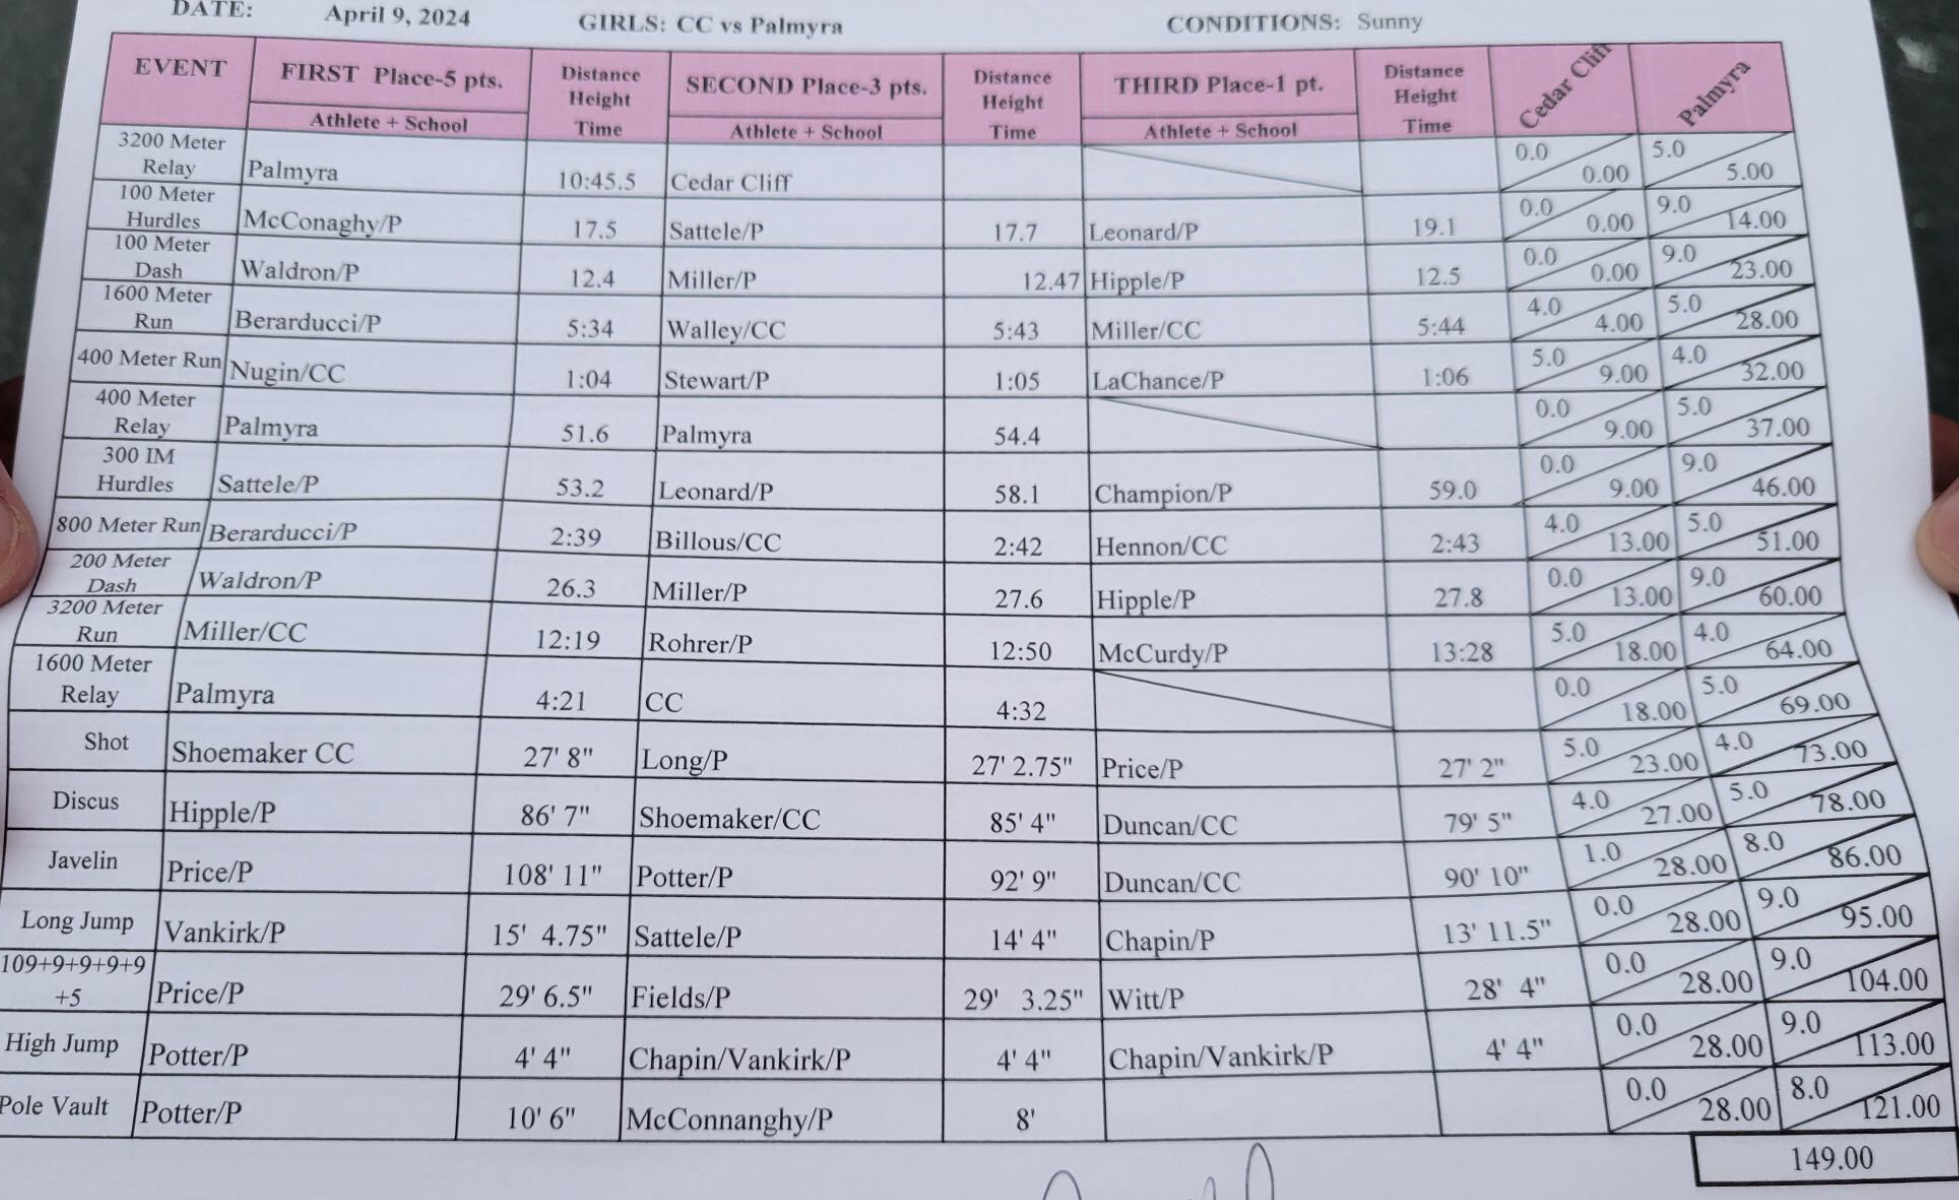 DATE: April 9, 2024 GIRLS: CC vs Palmyra CONDITIONS: Sunny
EVENT FIRST Place-5 pts. Distance Height Time SECOND Place-3 pts. Distance Height Time THIRD Place-1 pt. Distance Height Time Cedar Cliff Palmyra
Athlete + School Athlete + School Athlete + School
3200 Meter Relay Palmyra 10:45.5 Cedar Cliff 0.0 0.00 5.0 5.00
100 Meter Hurdles McConaghy/P 17.5 Sattele/P 17.7 Leonard/P 19.1 0.0 0.00 9.0 14.00
100 Meter Dash Waldron/P 12.4 Miller/P 12.47 Hipple/P 12.5 0.0 0.00 9.0 23.00
1600 Meter Run Berarducci/P 5:34 Walley/CC 5:43 Miller/CC 5:44 4.0 4.00 5.0 28.00
400 Meter Run Nugin/CC 1:04 Stewart/P 1:05 LaChance/P 1:06 5.0 9.00 4.0 32.00
400 Meter Relay Palmyra 51.6 Palmyra 54.4 0.0 9.00 5.0 37.00
300 IM Hurdles Sattele/P 53.2 Leonard/P 58.1 Champion/P 59.0 0.0 9.00 9.0 46.00
800 Meter Run Berarducci/P 2:39 Billous/CC 2:42 Hennon/CC 2:43 4.0 13.00 5.0 51.00
200 Meter Dash Waldron/P 26.3 Miller/P 27.6 Hipple/P 27.8 0.0 13.00 9.0 60.00
3200 Meter Run Miller/CC 12:19 Rohrer/P 12:50 McCurdy/P 13:28 5.0 18.00 4.0 64.00
1600 Meter Relay Palmyra 4:21 CC 4:32 0.0 18.00 5.0 69.00
Shot Shoemaker CC 27' 8" Long/P 27' 2.75" Price/P 27' 2" 5.0 23.00 4.0 73.00
Discus Hipple/P 86' 7" Shoemaker/CC 85' 4" Duncan/CC 79' 5" 4.0 27.00 5.0 78.00
Javelin Price/P 108' 11" Potter/P 92' 9" Duncan/CC 90' 10" 1.0 28.00 8.0 86.00
Long Jump Vankirk/P 15' 4.75" Sattele/P 14' 4" Chapin/P 13' 11.5" 0.0 28.00 9.0 95.00
109+9+9+9+9 +5 Price/P 29' 6.5" Fields/P 29' 3.25" Witt/P 28' 4" 0.0 28.00 9.0 104.00
High Jump Potter/P 4' 4" Chapin/Vankirk/P 4' 4" Chapin/Vankirk/P 4' 4" 0.0 28.00 9.0 113.00
Pole Vault Potter/P 10' 6" McConnanghy/P 8' 0.0 28.00 8.0 121.00
149.00